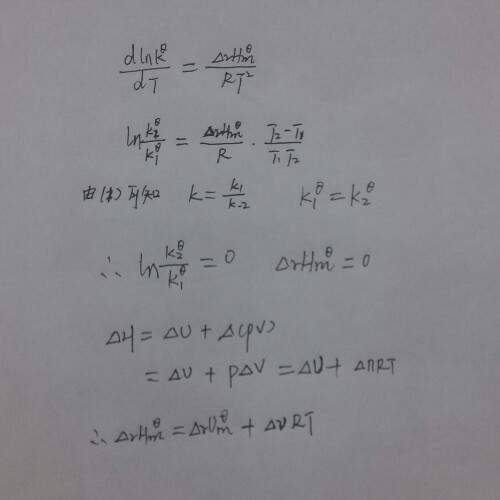 dlnK^θ/dT = ΔrHm^θ/RT²
ln K₂^θ/K₁^θ = ΔrHm^θ/R · T₂-T₁/T₁T₂
由(1)可知 K = k₁/k-2 K₁^θ = K₂^θ
∴ ln K₂^θ/K₁^θ = 0 ΔrHm^θ = 0
ΔH = ΔU + Δ(pV)
= ΔU + pΔV = ΔU + ΔnRT
∴ ΔrHm^θ = ΔrUm^θ + ΔνRT